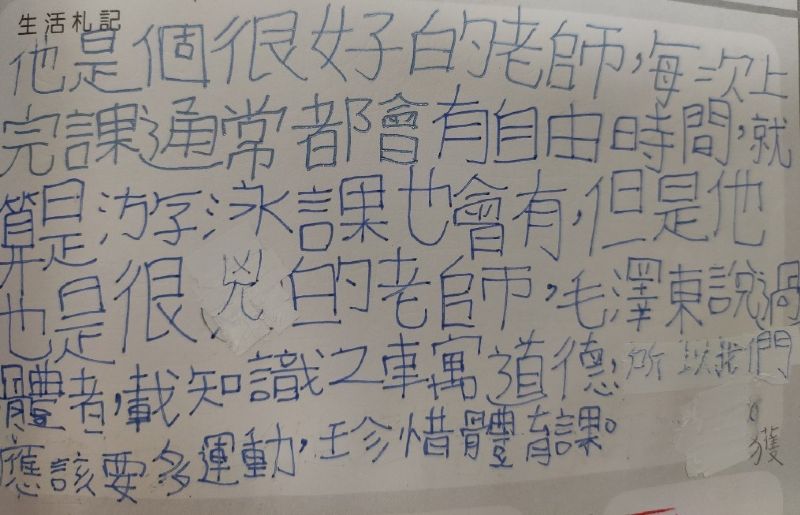 生活札記
他是個很好的老師，每次上
完課通常都會有自由時間，就
算是游泳課也會有，但是他
也是很兇的老師，毛澤東說過
體者，載知識之車寓道德，所以我們
應該要多運動，珍惜體育課。
。獲